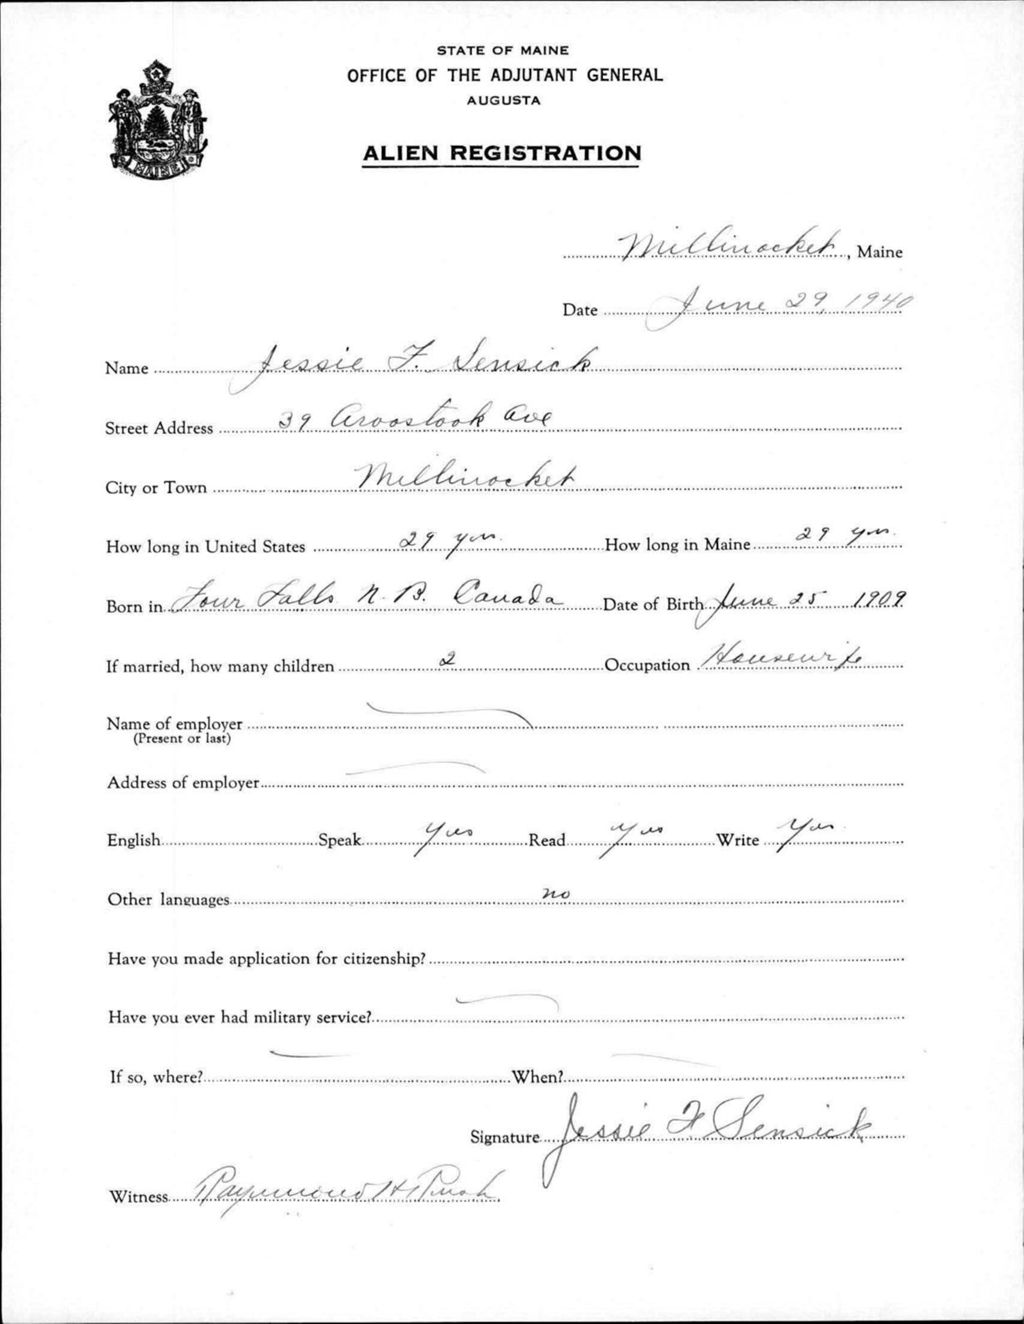 STATE OF MAINE
OFFICE OF THE ADJUTANT GENERAL
AUGUSTA
ALIEN REGISTRATION
MAINE
Millinocket, Maine
Date June 29, 1940
Name Jessie F. Sensick
Street Address 39 Aroostook Ave
City or Town Millinocket
How long in United States 29 yrs. How long in Maine 29 yrs.
Born in Four Falls N. B. Canada Date of Birth June 25 1909
If married, how many children 2 Occupation Housewife
Name of employer
(Present or last)
Address of employer
English Speak Yes Read Yes Write Yes
Other languages no
Have you made application for citizenship?
Have you ever had military service?
If so, where? When?
Signature Jessie F Sensick
Witness Raymond H